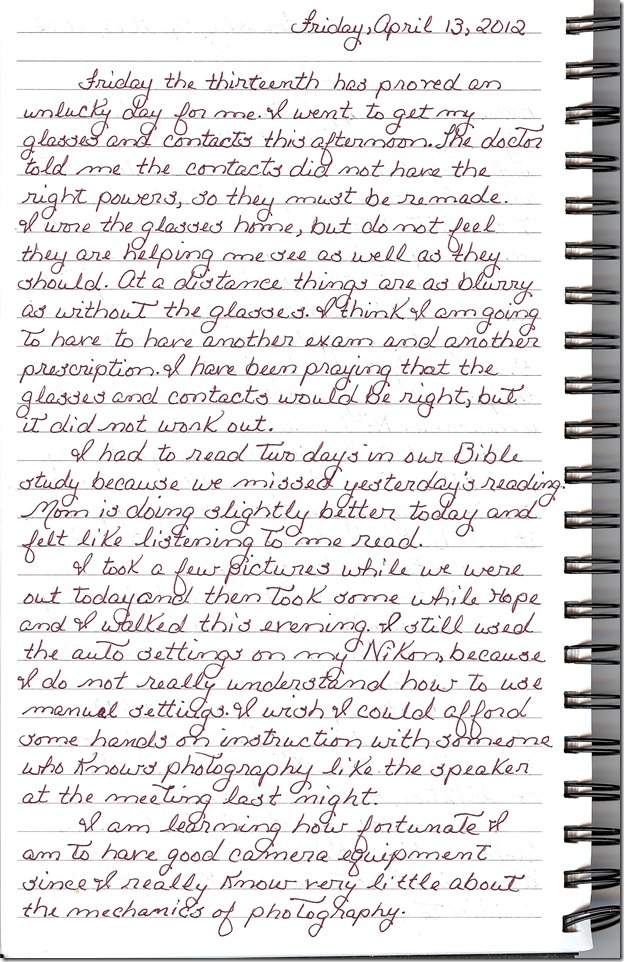 Friday, April 13, 2012
Friday the thirteenth has proved an
unlucky day for me. I went to get my
glasses and contacts this afternoon. The doctor
told me the contacts did not have the
right powers, so they must be remade.
I wore the glasses home, but do not feel
they are helping me see as well as they
should. At a distance things are as blurry
as without the glasses. I think I am going
to have to have another exam and another
prescription. I have been praying that the
glasses and contacts would be right, but
it did not work out.
I had to read two days in our Bible
study because we missed yesterday's reading.
Mom is doing slightly better today and
felt like listening to me read.
I took a few pictures while we were
out today and then took some while Hope
and I walked this evening. I still used
the auto settings on my Nikon, because
I do not really understand how to use
manual settings. I wish I could afford
some hands on instruction with someone
who knows photography like the speaker
at the meeting last night.
I am learning how fortunate I
am to have good camera equipment
since I really know very little about
the mechanics of photography.